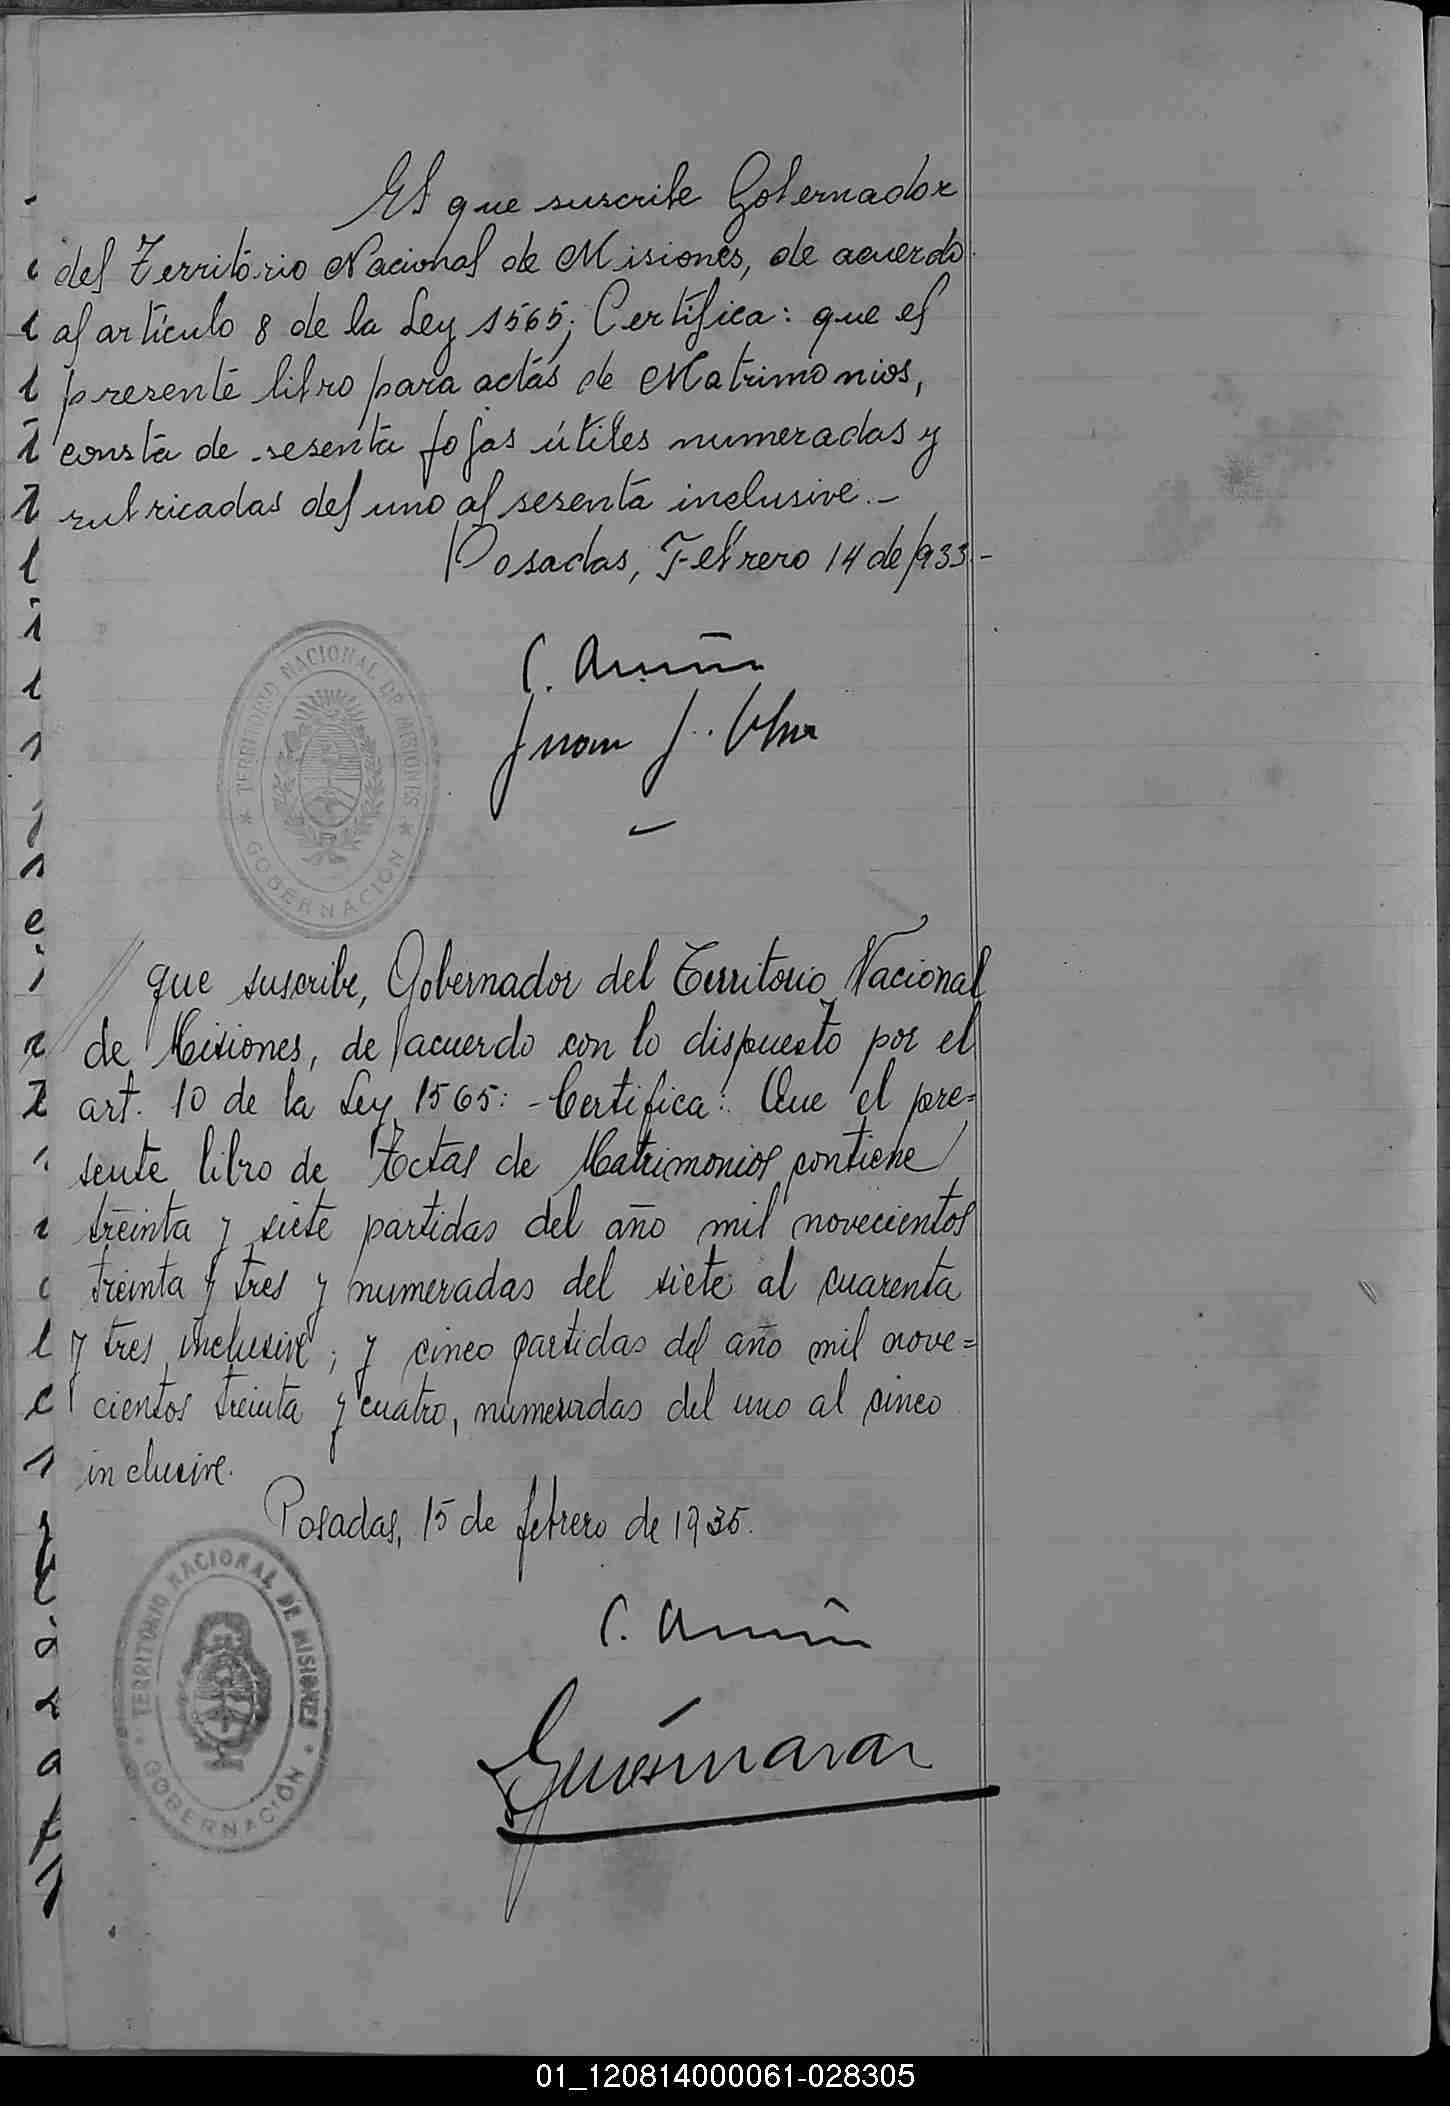 El que suscribe Gobernador
del Territorio Nacional de Misiones, de acuerdo
al artículo 8 de la Ley 1565; Certifica: que el
presente libro para actas de Matrimonios,
consta de sesenta fojas útiles numeradas y
rubricadas del uno al sesenta inclusive.-
Posadas, Febrero 14 de 1933.-
TERRITORIO NACIONAL DE MISIONES
GOBERNACIÓN
C.
Juan J.
que suscribe, Gobernador del Territorio Nacional
de Misiones, de acuerdo con lo dispuesto por el
art. 10 de la Ley 1565: - Certifica: Que el pre=
sente libro de Actas de Matrimonios contiene
treinta y siete partidas del año mil novecientos
treinta y tres y numeradas del siete al cuarenta
y tres inclusive; y cinco partidas del año mil nove=
cientos treinta y cuatro, numeradas del uno al cinco
inclusive.
Posadas, 15 de febrero de 1935.
TERRITORIO NACIONAL DE MISIONES
GOBERNACIÓN
C.
01_120814000061-028305